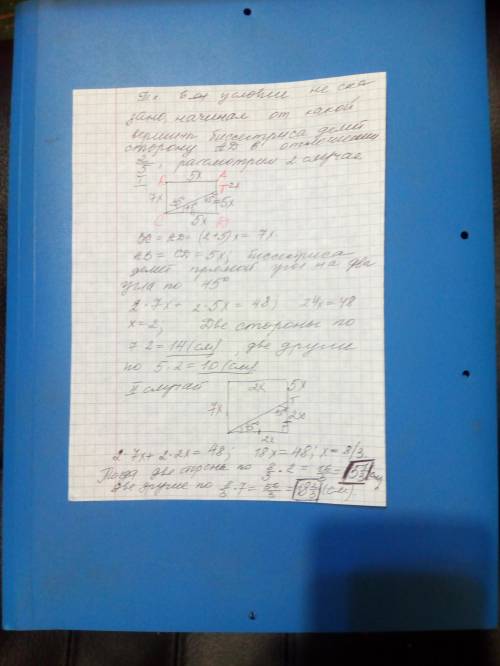 Т.к. в условии не ска-
зано, начиная от какой
вершины биссектриса делит
сторону AD в отношении
2/5, рассмотрим 2 случая
I
5x A
T 2x
7x 45° 45° 5x
C 5x D
BC = AD = (2+5)x = 7x
AB = CD = 5x; биссектриса
делит прямой угол на два
угла по 45°
2·7x + 2·5x = 48; 24x = 48
x = 2, Две стороны по
7·2 = 14 (см), две другие
по 5·2 = 10 (см)
II случай
2x 5x
7x 45° 2x
45°
2x
2·7x + 2·2x = 48; 18x = 48; x = 8/3.
Тогда две стороны по 8/3·2 = 16/3 = 5 1/3 см,
две другие по 8/3·7 = 56/3 = 18 2/3 (см)